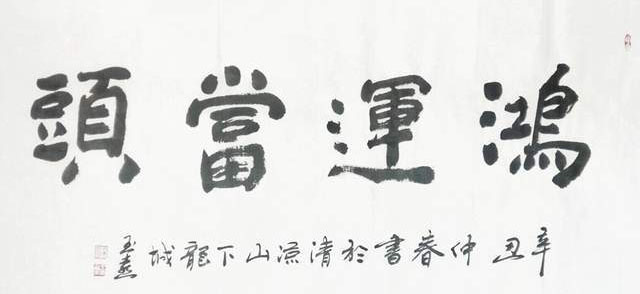 鴻運當頭
辛丑仲春書於清涼山下龍城
玉燾